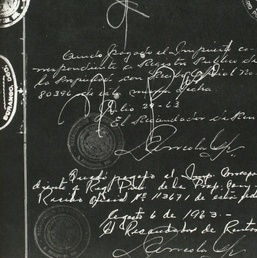 Quedó pagado el Impuesto co-
rrespondiente a Registro Público de
la Propiedad con Recibo Oficial No
80396 de esta misma fecha
Julio 29-63
El Recaudador de Ren
Quedó pagado el Imp. Corresp
diente a Reg. Púb. de la Prop. 
Recibo Oficial Nº 113671 de esta fecha
Agosto 6 de 1963.-
El Recaudador de Rentas